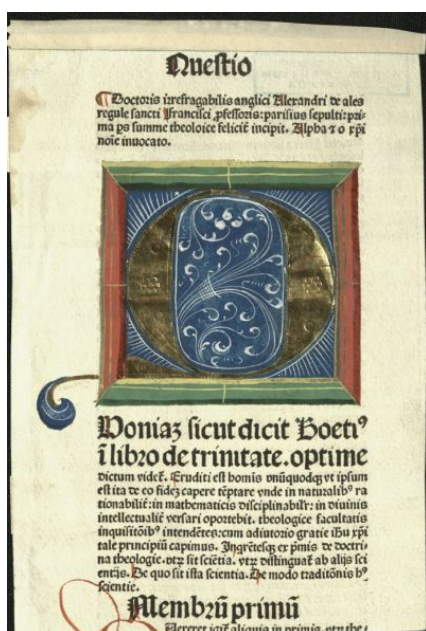 Questio
Doctoris irrefragabilis anglici Alexandri de ales
regule sancti Francisci ꝓfessoris: parisius sepulti: pri-
ma ps summe theoloice felicit̃ incipit. Alpha ⁊ o xp̃i
noĩe inuocato.
Q
Uoniaꝫ sicut dicit Boetiꝰ
ĩ libro de trinitate. optime
dictum videt᷑. Eruditi est homĩs vnũquodqꝫ vt ipsum
est ita de eo fideꝫ capere tẽptare vnde in naturalibꝰ ra
tionabilit᷑: in mathematicis disciplinabilr̃: in diuinis
intellectualit᷑ versari oportebit. theologice facultatis
inquisitõibꝰ intendẽtes: cum adiutorio gratie ihũ xp̃i
tale principiũ capimus. Ingrẽtesqꝫ ex p̃mis de doctri
na theologie. vtꝝ sit sciẽtia. vtꝝ distinguat᷑ ab alijs sci
entijs. De quo sit ista scientia. De modo traditõnis hꝰ
scientie.
Membrũ primũ
igit᷑ aliqua in primis. vtꝝ the-